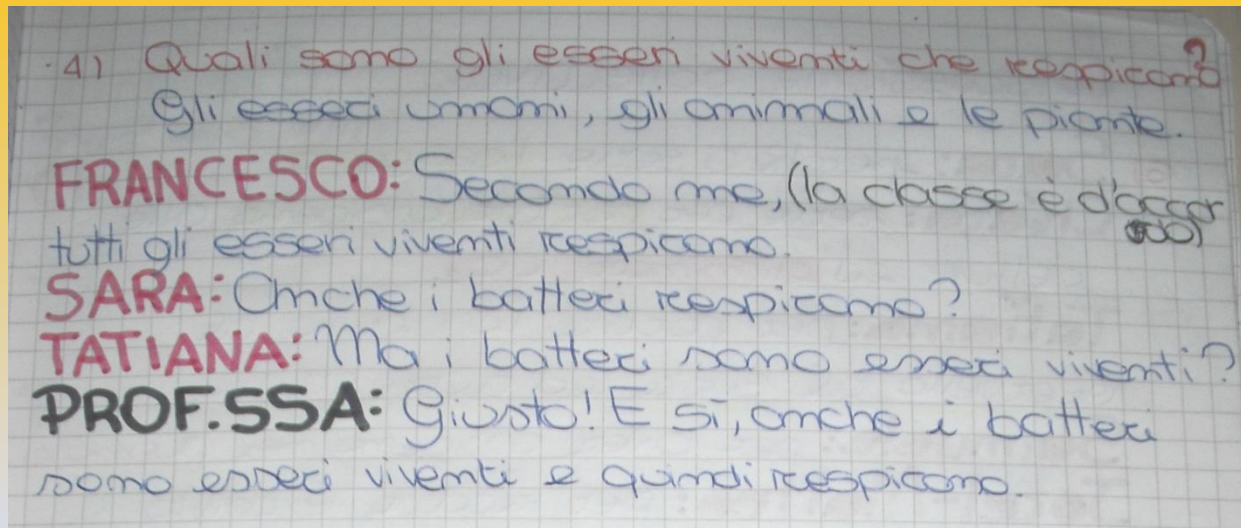 4) Quali sono gli esseri viventi che respirano?
Gli esseri umani, gli animali e le piante.
FRANCESCO: Secondo me, (la classe è d'accor
do)
tutti gli esseri viventi respirano.
SARA: Anche i batteri respirano?
TATIANA: Ma i batteri sono esseri viventi?
PROF.SSA: Giusto! E sì, anche i batteri
sono esseri viventi e quindi respirano.